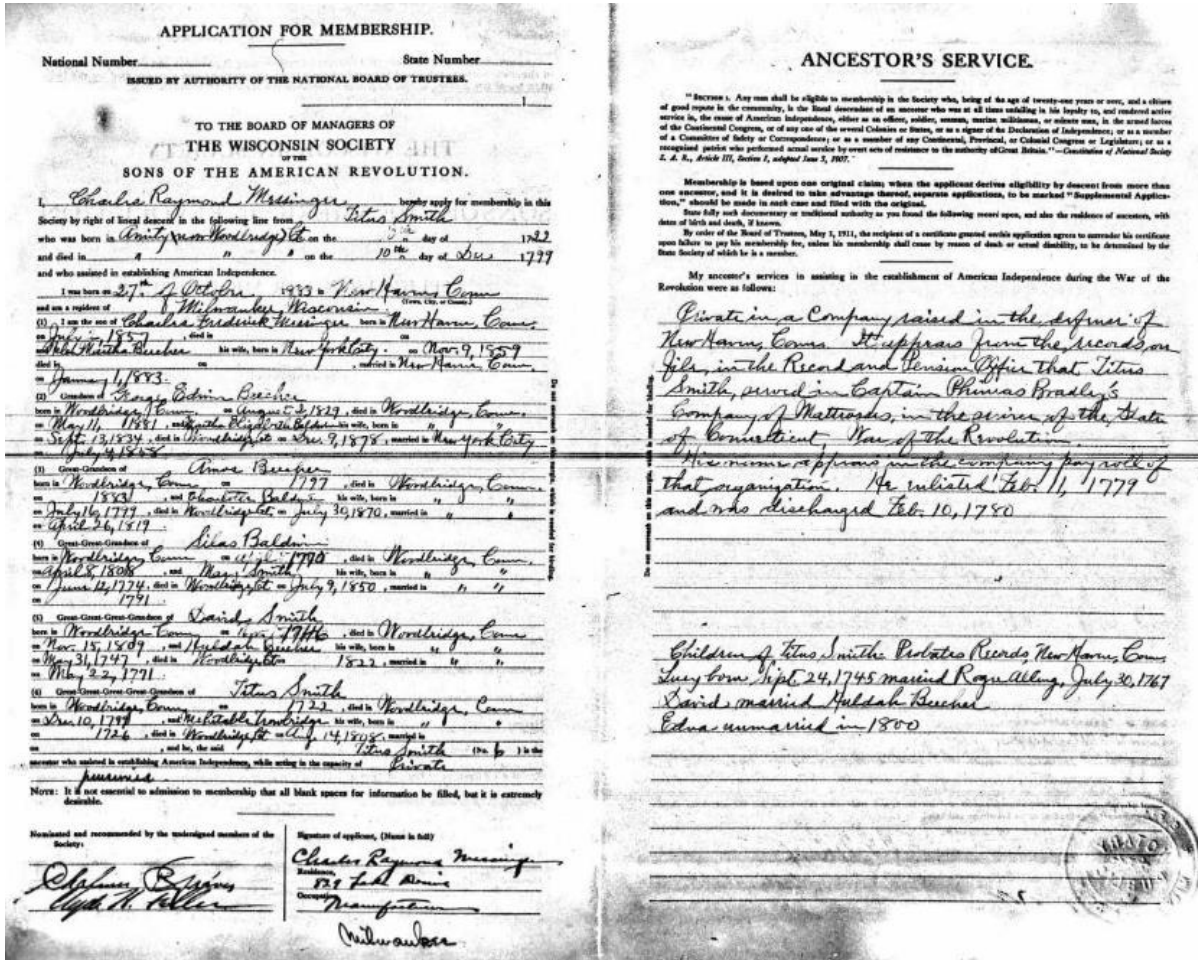 APPLICATION FOR MEMBERSHIP.
National Number State Number
ISSUED BY AUTHORITY OF THE NATIONAL BOARD OF TRUSTEES.
TO THE BOARD OF MANAGERS OF
THE WISCONSIN SOCIETY
OF THE
SONS OF THE AMERICAN REVOLUTION.
I, Charles Raymond Messinger hereby apply for membership in this
Society by right of lineal descent in the following line from Titus Smith
who was born in Amity (now Woodbridge) Ct on the day of 1722
and died in " " " on the 10th day of Dec 1799
and who assisted in establishing American Independence.
I was born on 27th of October 1883 in New Haven Conn
(Town, City, or County.)
and am a resident of Milwaukee Wisconsin
(1) I am the son of Charles Frederick Messinger born in New Haven, Conn.
on July 1857, died in
and Martha Beecher his wife, born in New York City. on Nov. 9, 1859
died in on , married in New Haven, Conn.
on January 1, 1883.
(2) Grandson of George Edwin Beecher
born in Woodbridge, Conn. on August 2, 1829, died in Woodbridge, Conn.
on May 11, 1881 and Martha Elizabeth Baldwin his wife, born in " "
on Sept. 13, 1834, died in Woodbridge Ct on Dec. 9, 1878, married in New York City
on July 4, 1858
(3) Great-Grandson of Amos Beecher
born in Woodbridge, Conn 1797 died in Woodbridge, Conn.
on 1883, and Charlotte Baldwin his wife, born in " "
on July 16, 1799, died in Woodbridge Ct. on July 30, 1870, married in " "
on April 26, 1819.
(4) Great-Great-Grandson of Silas Baldwin
born in Woodbridge, Conn on 1770, died in Woodbridge, Conn.
on April 8, 1808, and Mary Smith his wife, born in " "
on June 12, 1774, died in Woodbridge Ct on July 9, 1850, married in " "
on 1791
(5) Great-Great-Great-Grandson of David Smith
born in Woodbridge Conn on 1746, died in Woodbridge, Conn
on Nov. 15, 1809, and Huldah Beecher his wife, born in " "
on May 31, 1747, died in Woodbridge Ct on 1822, married in " "
on May 22, 1771.
(6) Great-Great-Great-Great-Grandson of Titus Smith
born in Woodbridge, Conn on 1722, died in Woodbridge, Conn
on Dec 10, 1799, and Mehitable his wife, born in " "
on 1726, died in Woodbridge Ct on Aug 14, 1808, married in
on , and he, the said Titus Smith (No. 6) is the
ancestor who assisted in establishing American Independence, while acting in the capacity of Private
NOTE: It is not essential to admission to membership that all blank spaces for information be filled, but it is extremely
desirable.
Nominated and recommended by the undersigned members of the
Society:
Signature of applicant, (Name in full)
Charles Raymond Messinger
Residence,
829 Lake Drive
Occupation,
Manufacturer
Milwaukee
Do not encroach on this margin, which is needed for binding.
ANCESTOR'S SERVICE.
"SECTION 1. Any man shall be eligible to membership in the Society who, being of the age of twenty-one years or over, and a citizen
of good repute in the community, is the lineal descendant of an ancestor who was at all times unfailing in his loyalty to, and rendered active
service in, the cause of American Independence, either as an officer, soldier, seaman, marine, militiaman, or minute man, in the armed forces
of the Continental Congress, or of any one of the several Colonies or States, or as a signer of the Declaration of Independence; or as a member
of a Committee of Safety or Correspondence; or as a member of any Continental, Provincial, or Colonial Congress or Legislature; or as a
recognized patriot who performed actual service by overt acts of resistance to the authority of Great Britain."—Constitution of National Society
S. A. R., Article III, Section 1, adopted June 3, 1907.
Membership is based upon one original claim; when the applicant derives eligibility by descent from more than
one ancestor, and it is desired to take advantage thereof, separate applications, to be marked "Supplemental Applica-
tion," should be made in each case and filed with the original.
State fully such documentary or traditional authority as you found the following record upon, and also the residence of ancestors, with
dates of birth and death, if known.
By order of the Board of Trustees, May 1, 1911, the recipient of a certificate granted on this application agrees to surrender his certificate
upon failure to pay his membership fee, unless his membership shall cease by reason of death or actual disability, to be determined by the
State Society of which he is a member.
My ancestor's services in assisting in the establishment of American Independence during the War of the
Revolution were as follows:
Private in a Company raised in the defense of
New Haven, Conn. It appears from the records on
file, in the Record and Pension Office that Titus
Smith, served in Captain Phineas Bradley's
Company of Mattrosses, in the service of the State
of Connecticut, War of the Revolution.
His name appears in the company pay roll of
that organization. He enlisted Feb. 11, 1779
and was discharged Feb. 10, 1780
Children of Titus Smith Probates Records, New Haven, Conn.
Lucy born Sept. 24, 1745 married Roger Alling, July 30, 1767
David married Huldah Beecher
Edna unmarried in 1800
Do not encroach on this margin, which is needed for binding.